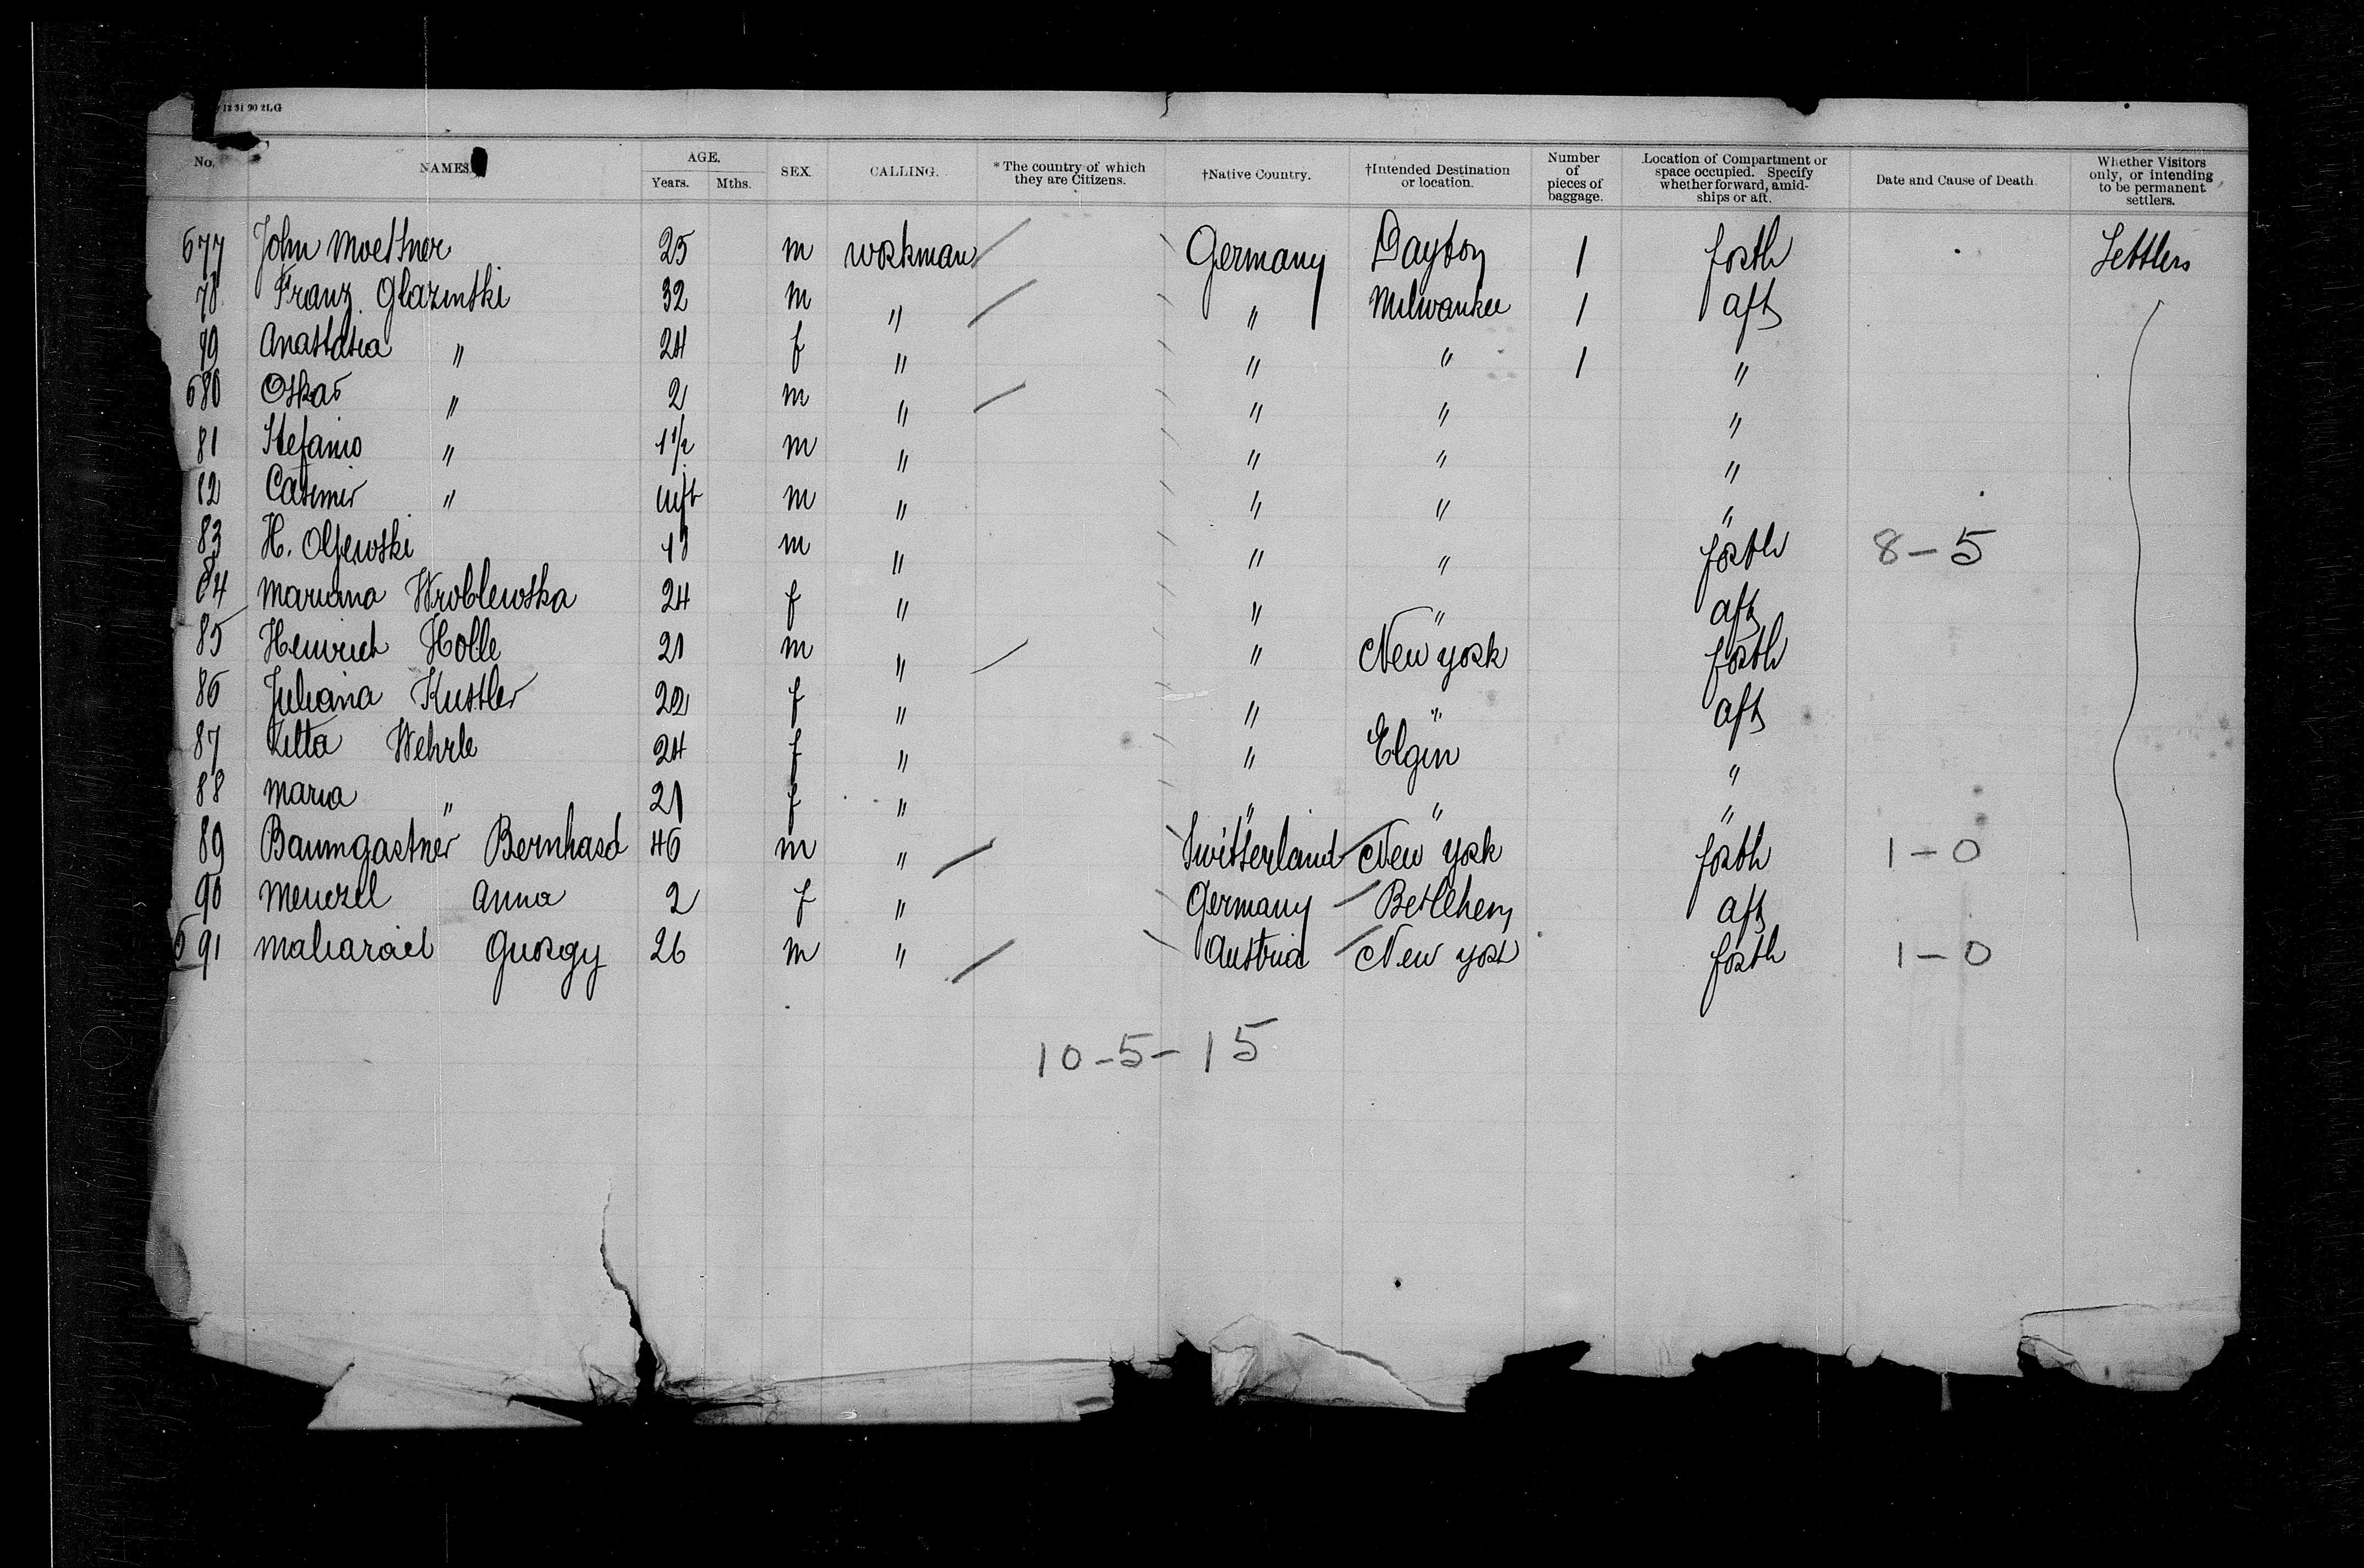 12 31 90 2LG
No. NAMES. AGE. Years. Mths. SEX. CALLING. * The country of which they are Citizens. †Native Country. †Intended Destination or location. Number of pieces of baggage. Location of Compartment or space occupied. Specify whether forward, amidships or aft. Date and Cause of Death. Whether Visitors only, or intending to be permanent settlers.
677 John Moettner 25 m workman Germany Dayton 1 forth Settlers
78 Franz Glazinski 32 m " " Milwaukee 1 aft
79 Anastasia " 24 f " " " 1 "
680 Oskar " 2 m " " " "
81 Stefanio " 1 1/2 m " " " "
82 Casimir " inft m " " " "
83 H. m " " " forth 8-5
84 Mariana Wroblewska 24 f " " " aft
85 Heinrich Holle 21 m " " New york forth
86 Juliana Kustler 22 f " " " aft
87 Wehrle 24 f " " Elgin "
88 Maria " 21 f " " " "
89 Baumgartner Bernhard 46 m " Switserland New york forth 1-0
90 Menzel Anna 2 f " Germany Betlehem aft
691 26 m " Austria New york forth 1-0
10-5-15